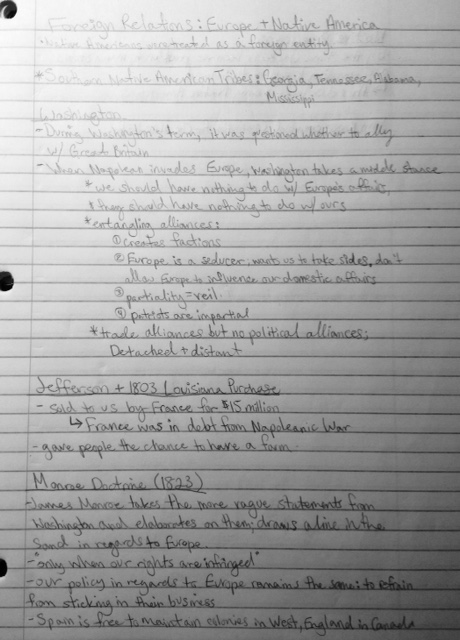 Foreign Relations: Europe + Native America
•Native Americans are treated as a foreign entity
*Southern Native American Tribes: Georgia, Tennessee, Alabama,
Mississippi
Washington
- During Washington's term, it was whether to ally
w/ Great Britain
- When Napolean invades Europe, Washington takes a middle stance
*we should have nothing to do w/ Europe's affairs,
*they should have nothing to do w/ ours
*entangling alliances:
① creates factions
② Europe is a seducer, wants us to take sides, don't
allow Europe to influence our domestic affairs
③ partiality = veil
④ patriots are impartial
*trade alliances but no political alliances;
Detached + distant
Jefferson + 1803 Louisiana Purchase
- sold to us by France for $15 million
↳ France was in debt from Napoleanic War
- gave people the chance to have a farm
Monroe Doctrine (1823)
- James Monroe takes the more vague statements from
Washington and elaborates on them; draws a line in the
Sand in regards to Europe.
- "only when our rights are infringed"
- our policy in regards to Europe remains the same: to refrain
from sticking in their business
- Spain is free to maintain colonies in West, England in Canada